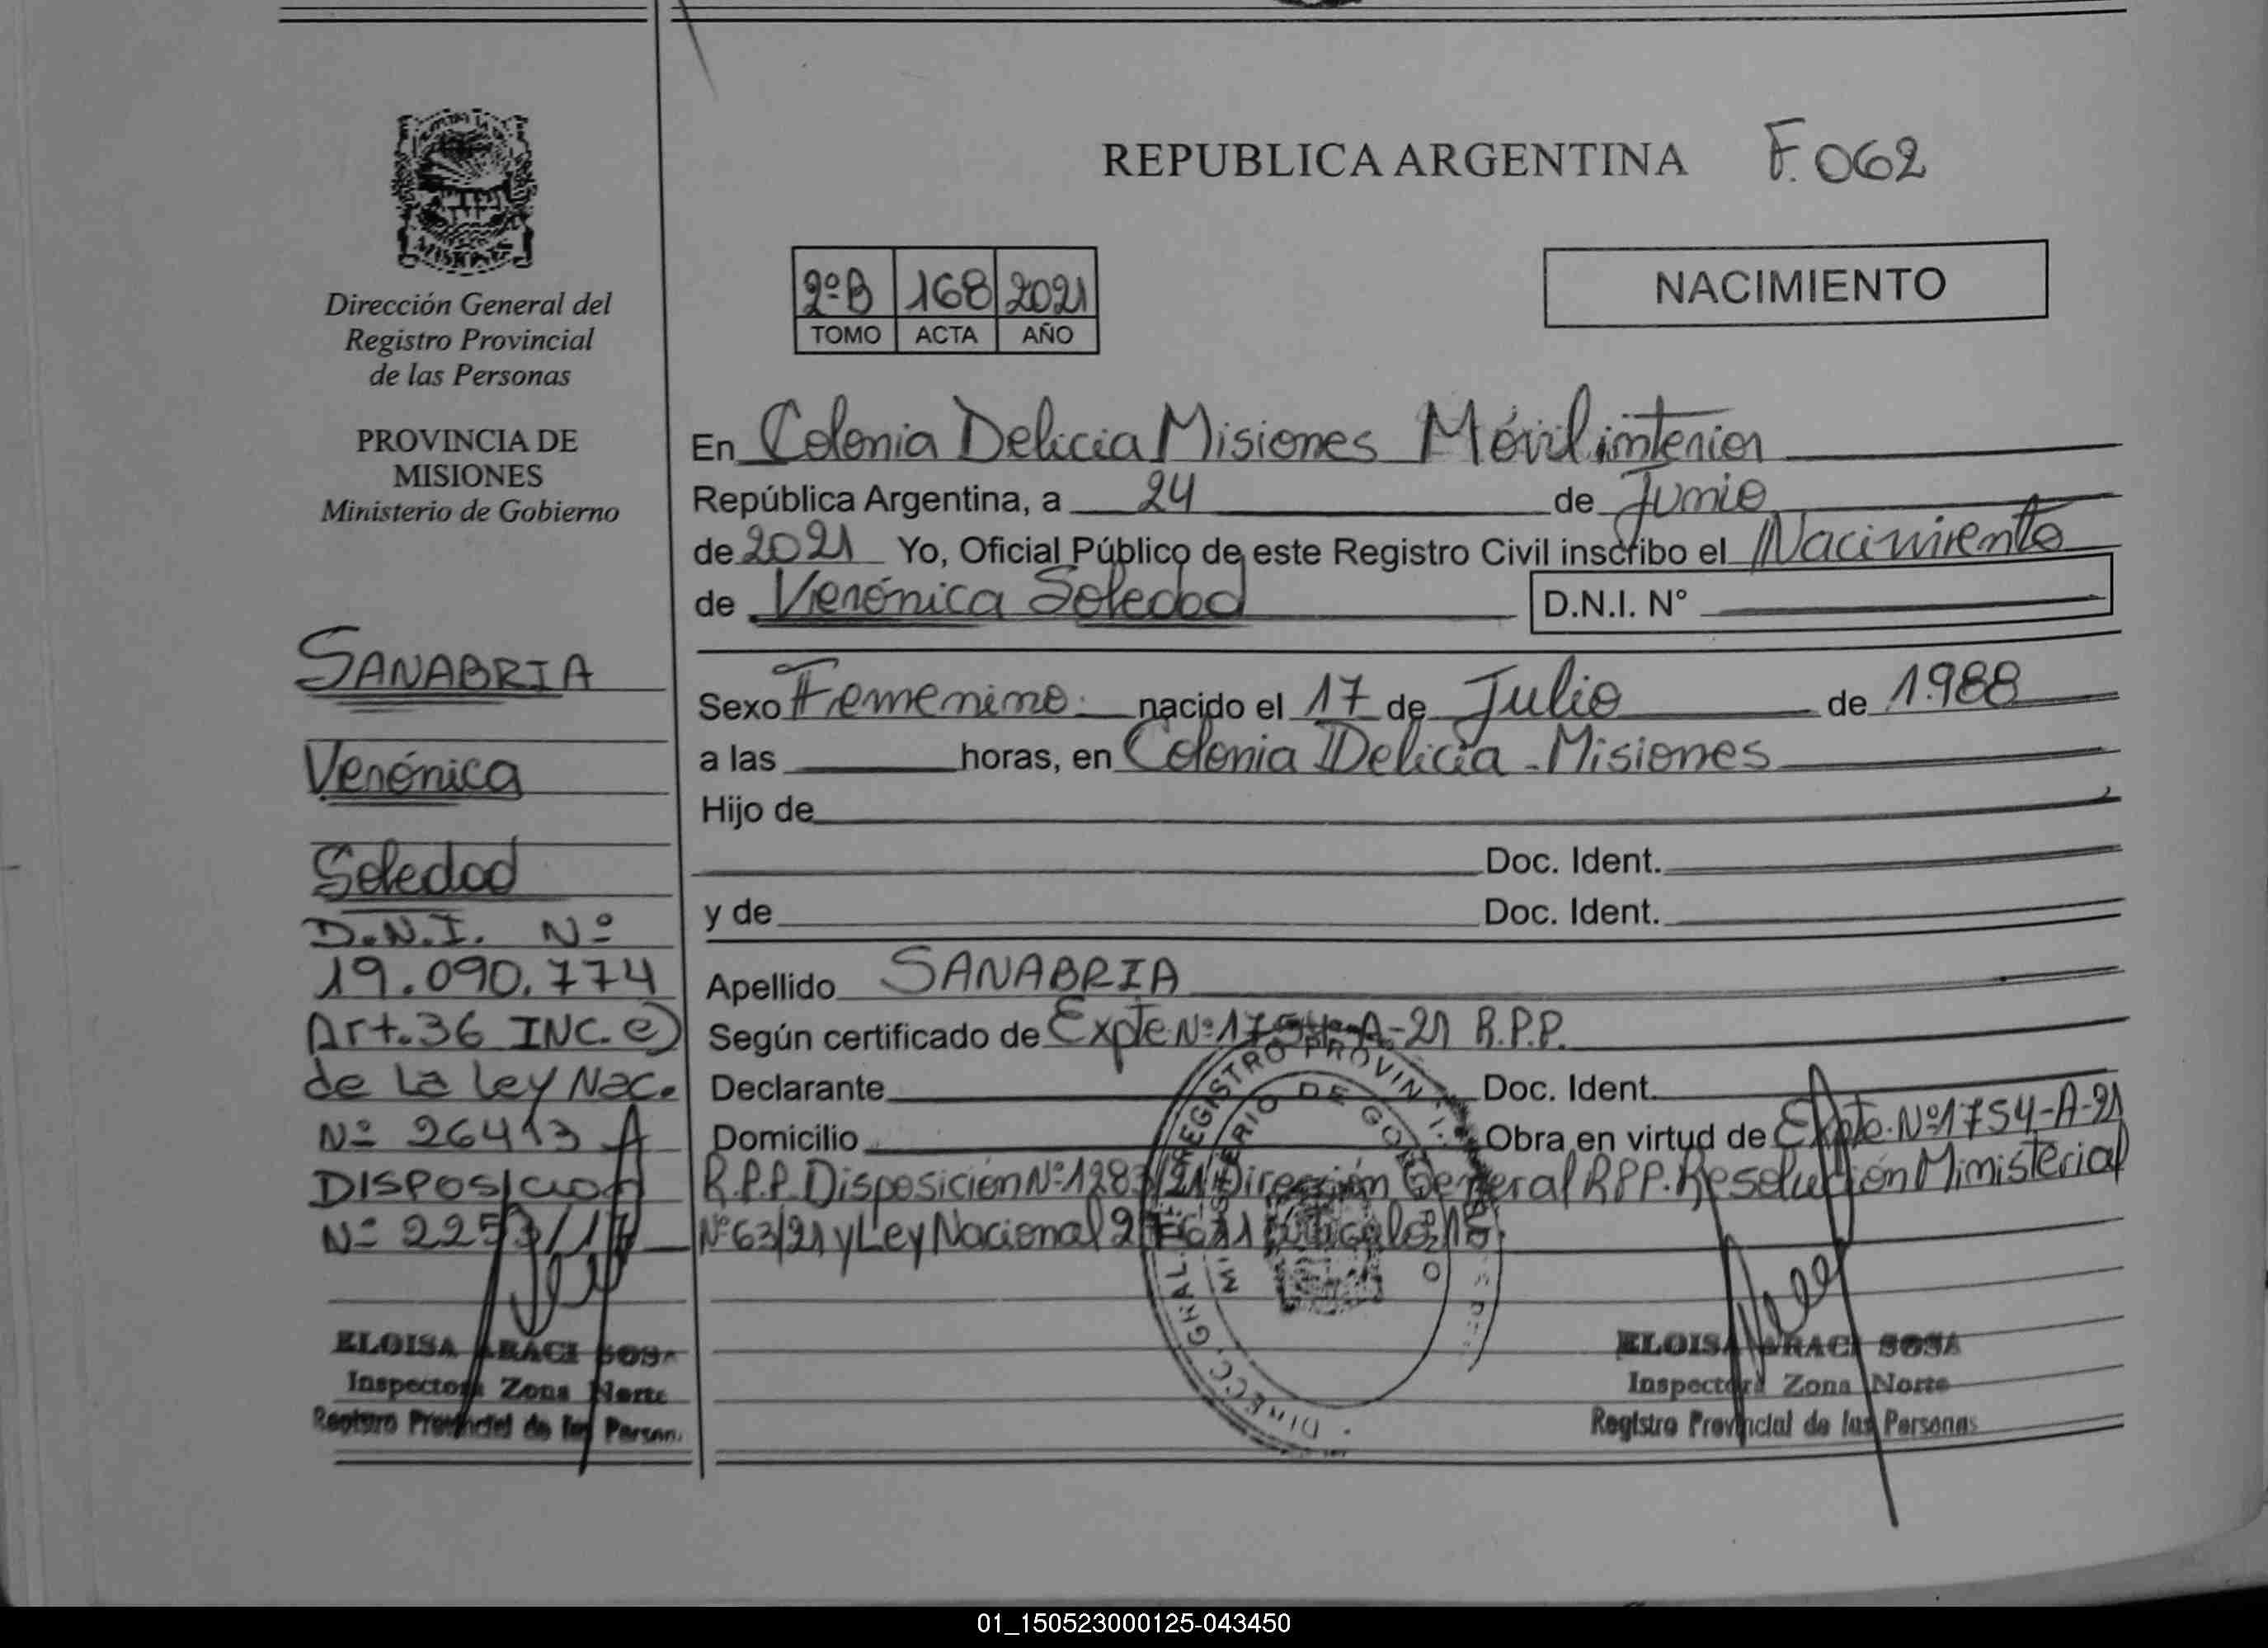 REPUBLICA ARGENTINA F. 062
2º B 168 2021
TOMO ACTA AÑO
NACIMIENTO
Dirección General del
Registro Provincial
de las Personas
PROVINCIA DE
MISIONES
Ministerio de Gobierno
SANABRIA
Verónica
Soledad
D.N.I. Nº
19.090.774
Art.36 INC. e)
de La Ley Nac.
Nº 26413
DISPOSICION
Nº 2253/17
ELOISA ARACI SOSA
Inspectora Zona Norte
Registro Provincial de las Person.
En Colonia Delicia Misiones Móvil interior
República Argentina, a 24 de Junio
de 2021 Yo, Oficial Público de este Registro Civil inscribo el Nacimiento
de Verónica Soledad D.N.I. N°
Sexo Femenino. nacido el 17 de Julio de 1.988
a las horas, en Colonia Delicia - Misiones
Hijo de
Doc. Ident.
y de Doc. Ident.
Apellido SANABRIA
Según certificado de Expte. Nº 1754-A-21 R.P.P.
Declarante Doc. Ident.
Domicilio Obra en virtud de Expte. Nº 1754-A-21
R.P.P. Disposición Nº 1283/21 Dirección General RPP. Resolución Ministerial
Nº 63/21 y Ley Nacional
REGISTRO PROVIN
DIRECC. GRAL.
ELOISA ARACI SOSA
Inspectora Zona Norte
Registro Provincial de las Personas
01_150523000125-043450